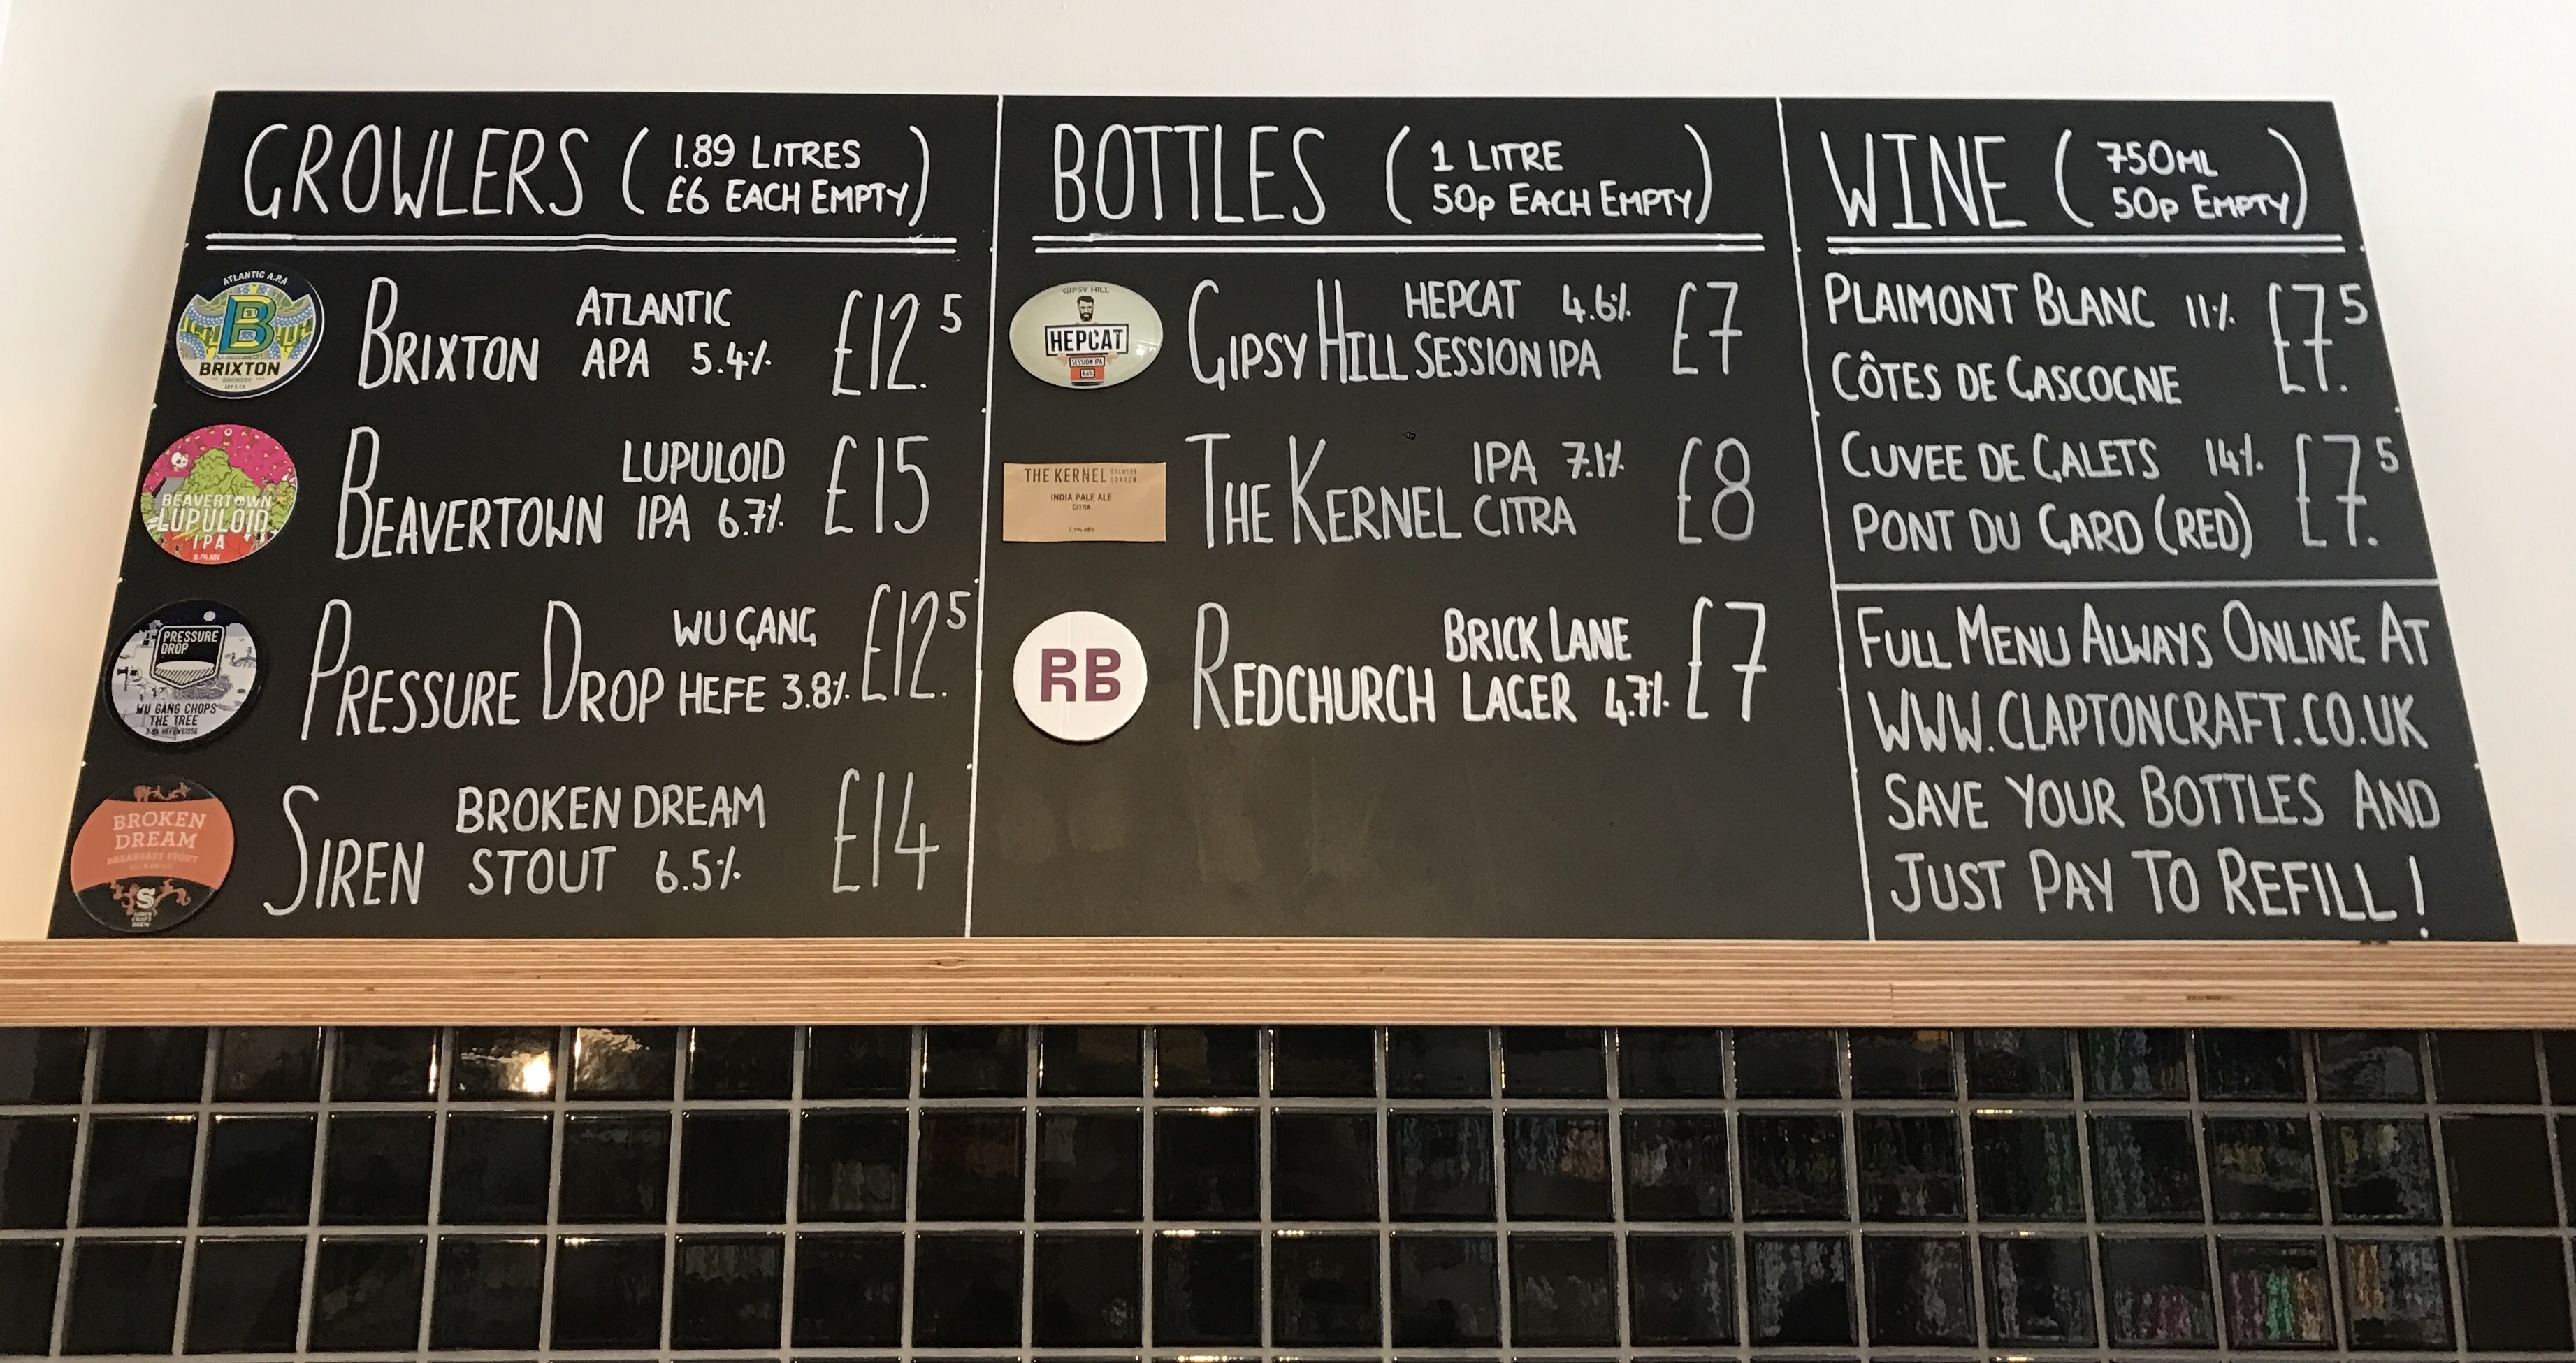 GROWLERS (1.89 LITRES
£6 EACH EMPTY)
ATLANTIC A.P.A
B
BRIXTON
BREWERY
BRIXTON ATLANTIC
APA 5.4% £12.5
BEAVERTOWN
LUPULOID
IPA
6.7% ABV
BEAVERTOWN LUPULOID
IPA 6.7% £15
PRESSURE
DROP
WU GANG CHOPS
THE TREE
3.8% HEFEWEISSE
PRESSURE DROP WU GANG
HEFE 3.8% £12.5
BROKEN
DREAM
BREAKFAST STOUT
S
SIREN
CRAFT
BREW
SIREN BROKEN DREAM
STOUT 6.5% £14
BOTTLES (1 LITRE
50p EACH EMPTY)
GIPSY HILL
HEPCAT
SESSION IPA
4.6%
GIPSY HILL HEPCAT 4.6%
SESSION IPA £7
THE KERNEL BREWERY
LONDON
INDIA PALE ALE
CITRA
7.1% ABV
THE KERNEL IPA 7.1%
CITRA £8
RB
REDCHURCH BRICK LANE
LAGER 4.7% £7
WINE (750ML
50P EMPTY)
PLAIMONT BLANC 11% £7.5
CÔTES DE GASCOGNE
CUVEE DE GALETS 14% £7.5
PONT DU GARD (RED)
FULL MENU ALWAYS ONLINE AT
WWW.CLAPTONCRAFT.CO.UK
SAVE YOUR BOTTLES AND
JUST PAY TO REFILL!